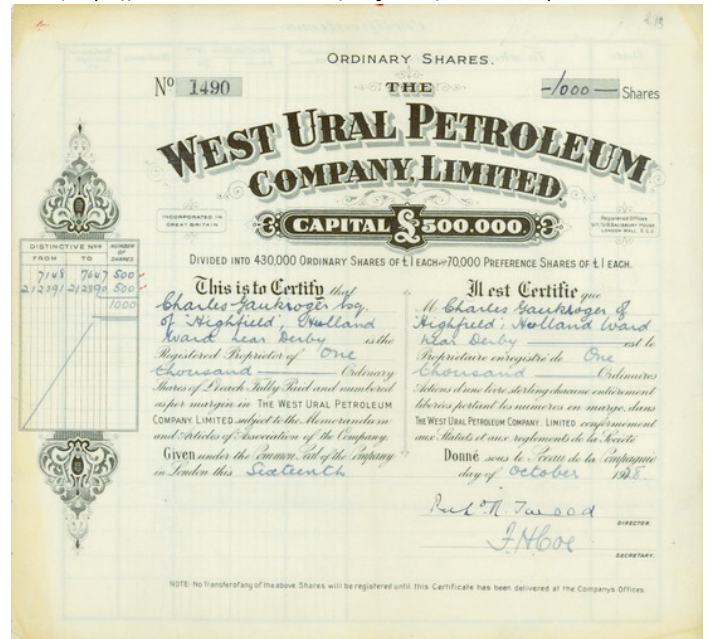 ORDINARY SHARES.
No 1490
THE
-1000- Shares
WEST URAL PETROLEUM
COMPANY, LIMITED.
INCORPORATED IN
GREAT BRITAIN
CAPITAL £500.000.
Registered Offices
SALISBURY HOUSE
LONDON WALL, E.C.2.
DIVIDED INTO 430,000 ORDINARY SHARES OF £1 EACH AND 70,000 PREFERENCE SHARES OF £1 EACH.
DISTINCTIVE Nos
NUMBER OF SHARES
FROM TO
7148 7647 500
212391 212890 500
1000
This is to Certify that
Charles Gaukroger Esq.
of 'Highfield', Holland
Ward near Derby is the
Registered Proprietor of One
thousand Ordinary
Shares of £1 each Fully Paid and numbered
as per margin in THE WEST URAL PETROLEUM
COMPANY, LIMITED subject to the Memorandum
and Articles of Association of the Company.
Given under the Common Seal of the Company
in London this Sixteenth
Il est Certifie que
M. Charles Gaukroger of
'Highfield', Holland Ward
near Derby est le
Proprietaire enregistré de One
thousand Ordinaires
Actions d'une livre sterling chacune entièrement
liberées portant les numeros en marge, dans
THE WEST URAL PETROLEUM COMPANY, LIMITED conformement
aux Statuts et aux reglements de la Societé
Donné sous le Sceau de la Compagnie
day of October 1928.
DIRECTOR.
F. H. Coe
SECRETARY.
NOTE: No Transfer of any of the above Shares will be registered until this Certificate has been delivered at the Company's Offices.